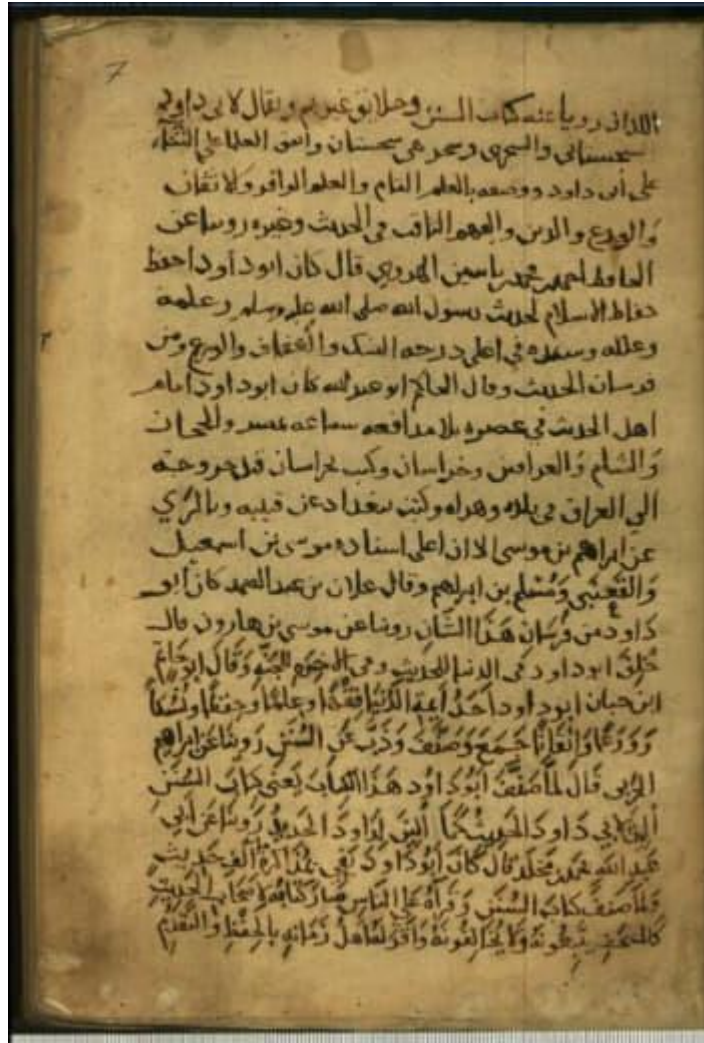 7
اللذان رويا عنه كتاب السنن وخلايق غيرهم ويقال لابي داود
سجستاني والسجزي وسجز هي سجستان واتفق العلما على الثناء
على أبي داود ووصفه بالعلم التام والعلم الوافر والاتقان
وَالورع والدين والفهم الثاقب في الحديث وغيره روينا عن
الحافظ احمد بن محمد بن ياسين الهروي قال كان ابو داود احد حفاظ
الاسلام لحديث رسول الله صلى الله عليه وسلم وعلمه
وعلله وسنده في اعلى درجة النسك والعفاف والورع ومن
فرسان الحديث وقال الحاكم ابو عبد الله كان ابو داود امام
اهل الحديث في عصره بلا مدافعه سماعه بمصر والحجاز
وَالشام وَالعراقين وخراسان وكتب بخراسان قبل خروجه
الي العراق في بلده وهراه وكتب ببغداد عن قتيبه وبالرَي
عن ابراهيم بن موسى الا ان اعلى اسناده موسى بن اسمعيل
وَالقَعنَبي وَمُسْلم بن ابرهيم وقال علان بن عبد الصمد كان ابو
دَاود من فُرسَان هَذا الشَّان روينا عن موسى بن هارون قال
خُلِقَ ابو داود في الدنيا للحديث وفي الاخره للجنه وَقال ابو حَاتم
ابن حبان ابو داود أحَدُ أيمة الدُّنيَا فِقْهًا وعِلمًا وحِفظًا ونُسُكًا
وَوَرَعًا وَاتْقَانًا جَمَعَ وَصَنَّفَ وَذَبَّ عَنِ السُّنَنِ رَوينَا عَن ابراهيم
الحَربي قَالَ لمَا صَنَّفَ ابُو دَاوُد هَذَا الكتابَ يَعني كتابَ السُّنن
أُلِينَ لأبي دَاودَ الحَديثُ كمَا أُلينَ لِدَاودَ الحَديدُ رَوينَا عَن أبي
عَبد الله محمد بن مَخلَد قال كَانَ أبُو دَاودَ يَفي بمُذَاكَرَة ألف حَديثٍ
وَلمَا صَنفَ كتابَ السُنَن وَقرَأهُ عَلى النَاسِ صَارَ كِتابُهُ لأصْحَابِ الحَدِيثِ
كالمصْحفِ يَتَّبِعُونَهُ وَلا يُخَالِفُونَهُ وَأقَرَّ لهُ أهلُ زَمَانِهِ بالحِفْظِ وَالتَقَدُّم